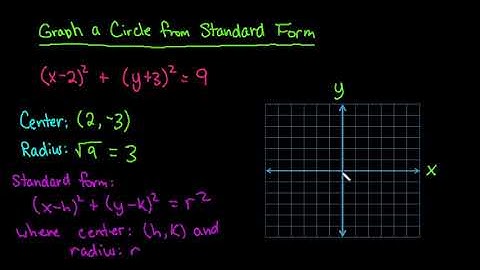 Graph a Circle from Standard Form
(x-2)² + (y+3)² = 9
Center: (2, -3)
Radius: √9 = 3
Standard form:
(x-h)² + (y-k)² = r²
where center: (h, k) and
radius: r
y
x